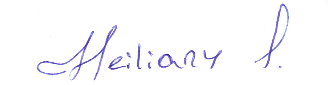 Heiliary S.